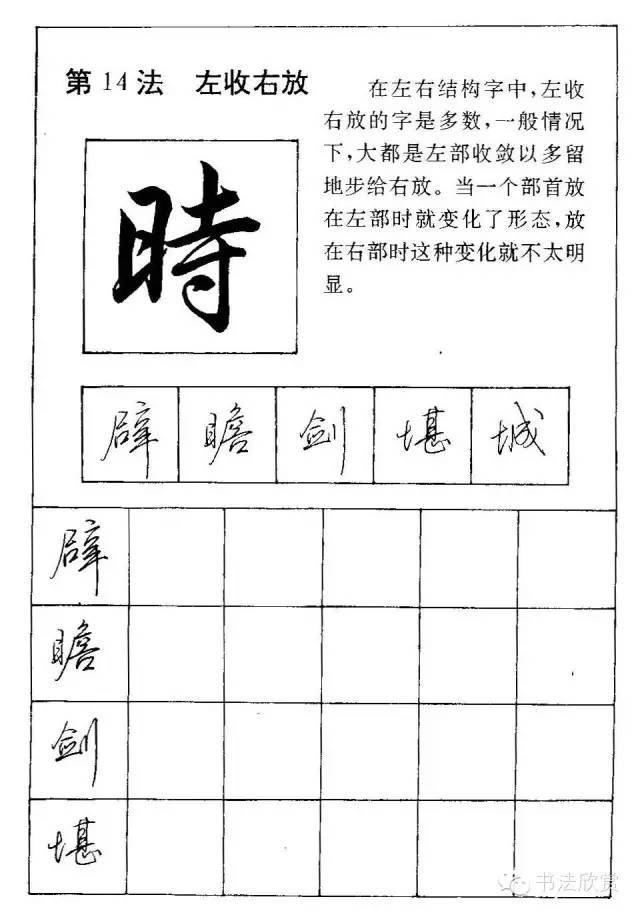 第14法 左收右放
在左右结构字中,左收
右放的字是多数,一般情况
下,大都是左部收敛以多留
地步给右放。当一个部首放
在左部时就变化了形态,放
在右部时这种变化就不太明
显。
時
辟 瞻 剑 堪 城
辟
瞻
剑
堪
书法欣赏